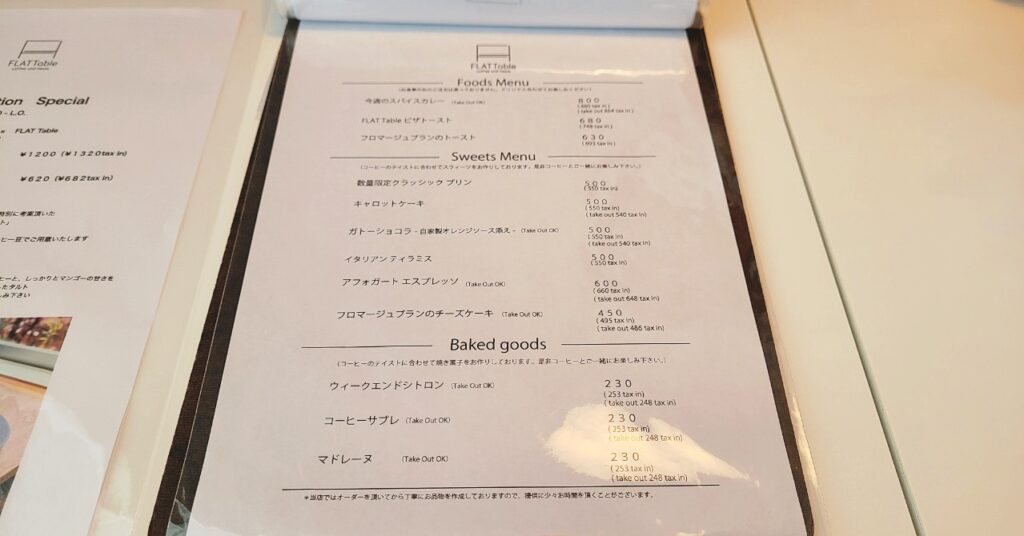 FLAT Table
coffee and meals
tion Special
- L.O.
× FLAT Table
¥1200 (¥1320tax in)
¥620 (¥682tax in)
特別に考案頂いた
ト」
ヒー豆でご用意いたします
ヒーと、しっかりとマンゴーの甘さを
たタルト
しみ下さい
FLAT Table
coffee and meals
Foods Menu
今週のスパイスカレー (Take Out OK) 800
(880 tax in)
(take out 864 tax in)
FLAT Table ピザトースト 680
(748 tax in)
フロマージュブランのトースト 630
(693 tax in)
Sweets Menu
(コーヒーのテイストに合わせてスウィーツをお作りしております。是非コーヒーとご一緒にお楽しみ下さい。)
数量限定クラッシック プリン 500
(550 tax in)
キャロットケーキ 500
(550 tax in)
(take out 540 tax in)
ガトーショコラ - 自家製オレンジソース添え - (Take Out OK) 500
(550 tax in)
(take out 540 tax in)
イタリアン ティラミス 500
(550 tax in)
アフォガート エスプレッソ (Take Out OK) 600
(660 tax in)
(take out 648 tax in)
フロマージュブランのチーズケーキ (Take Out OK) 450
(495 tax in)
(take out 486 tax in)
Baked goods
(コーヒーのテイストに合わせて焼き菓子をお作りしております。是非コーヒーとご一緒にお楽しみ下さい。)
ウィークエンドシトロン (Take Out OK) 230
(253 tax in)
(take out 248 tax in)
コーヒーサブレ (Take Out OK) 230
(253 tax in)
(take out 248 tax in)
マドレーヌ (Take Out OK) 230
(253 tax in)
(take out 248 tax in)
*当店ではオーダーを頂いてから丁寧にお品物を作成しておりますので、提供に少々お時間を頂くことがございます。